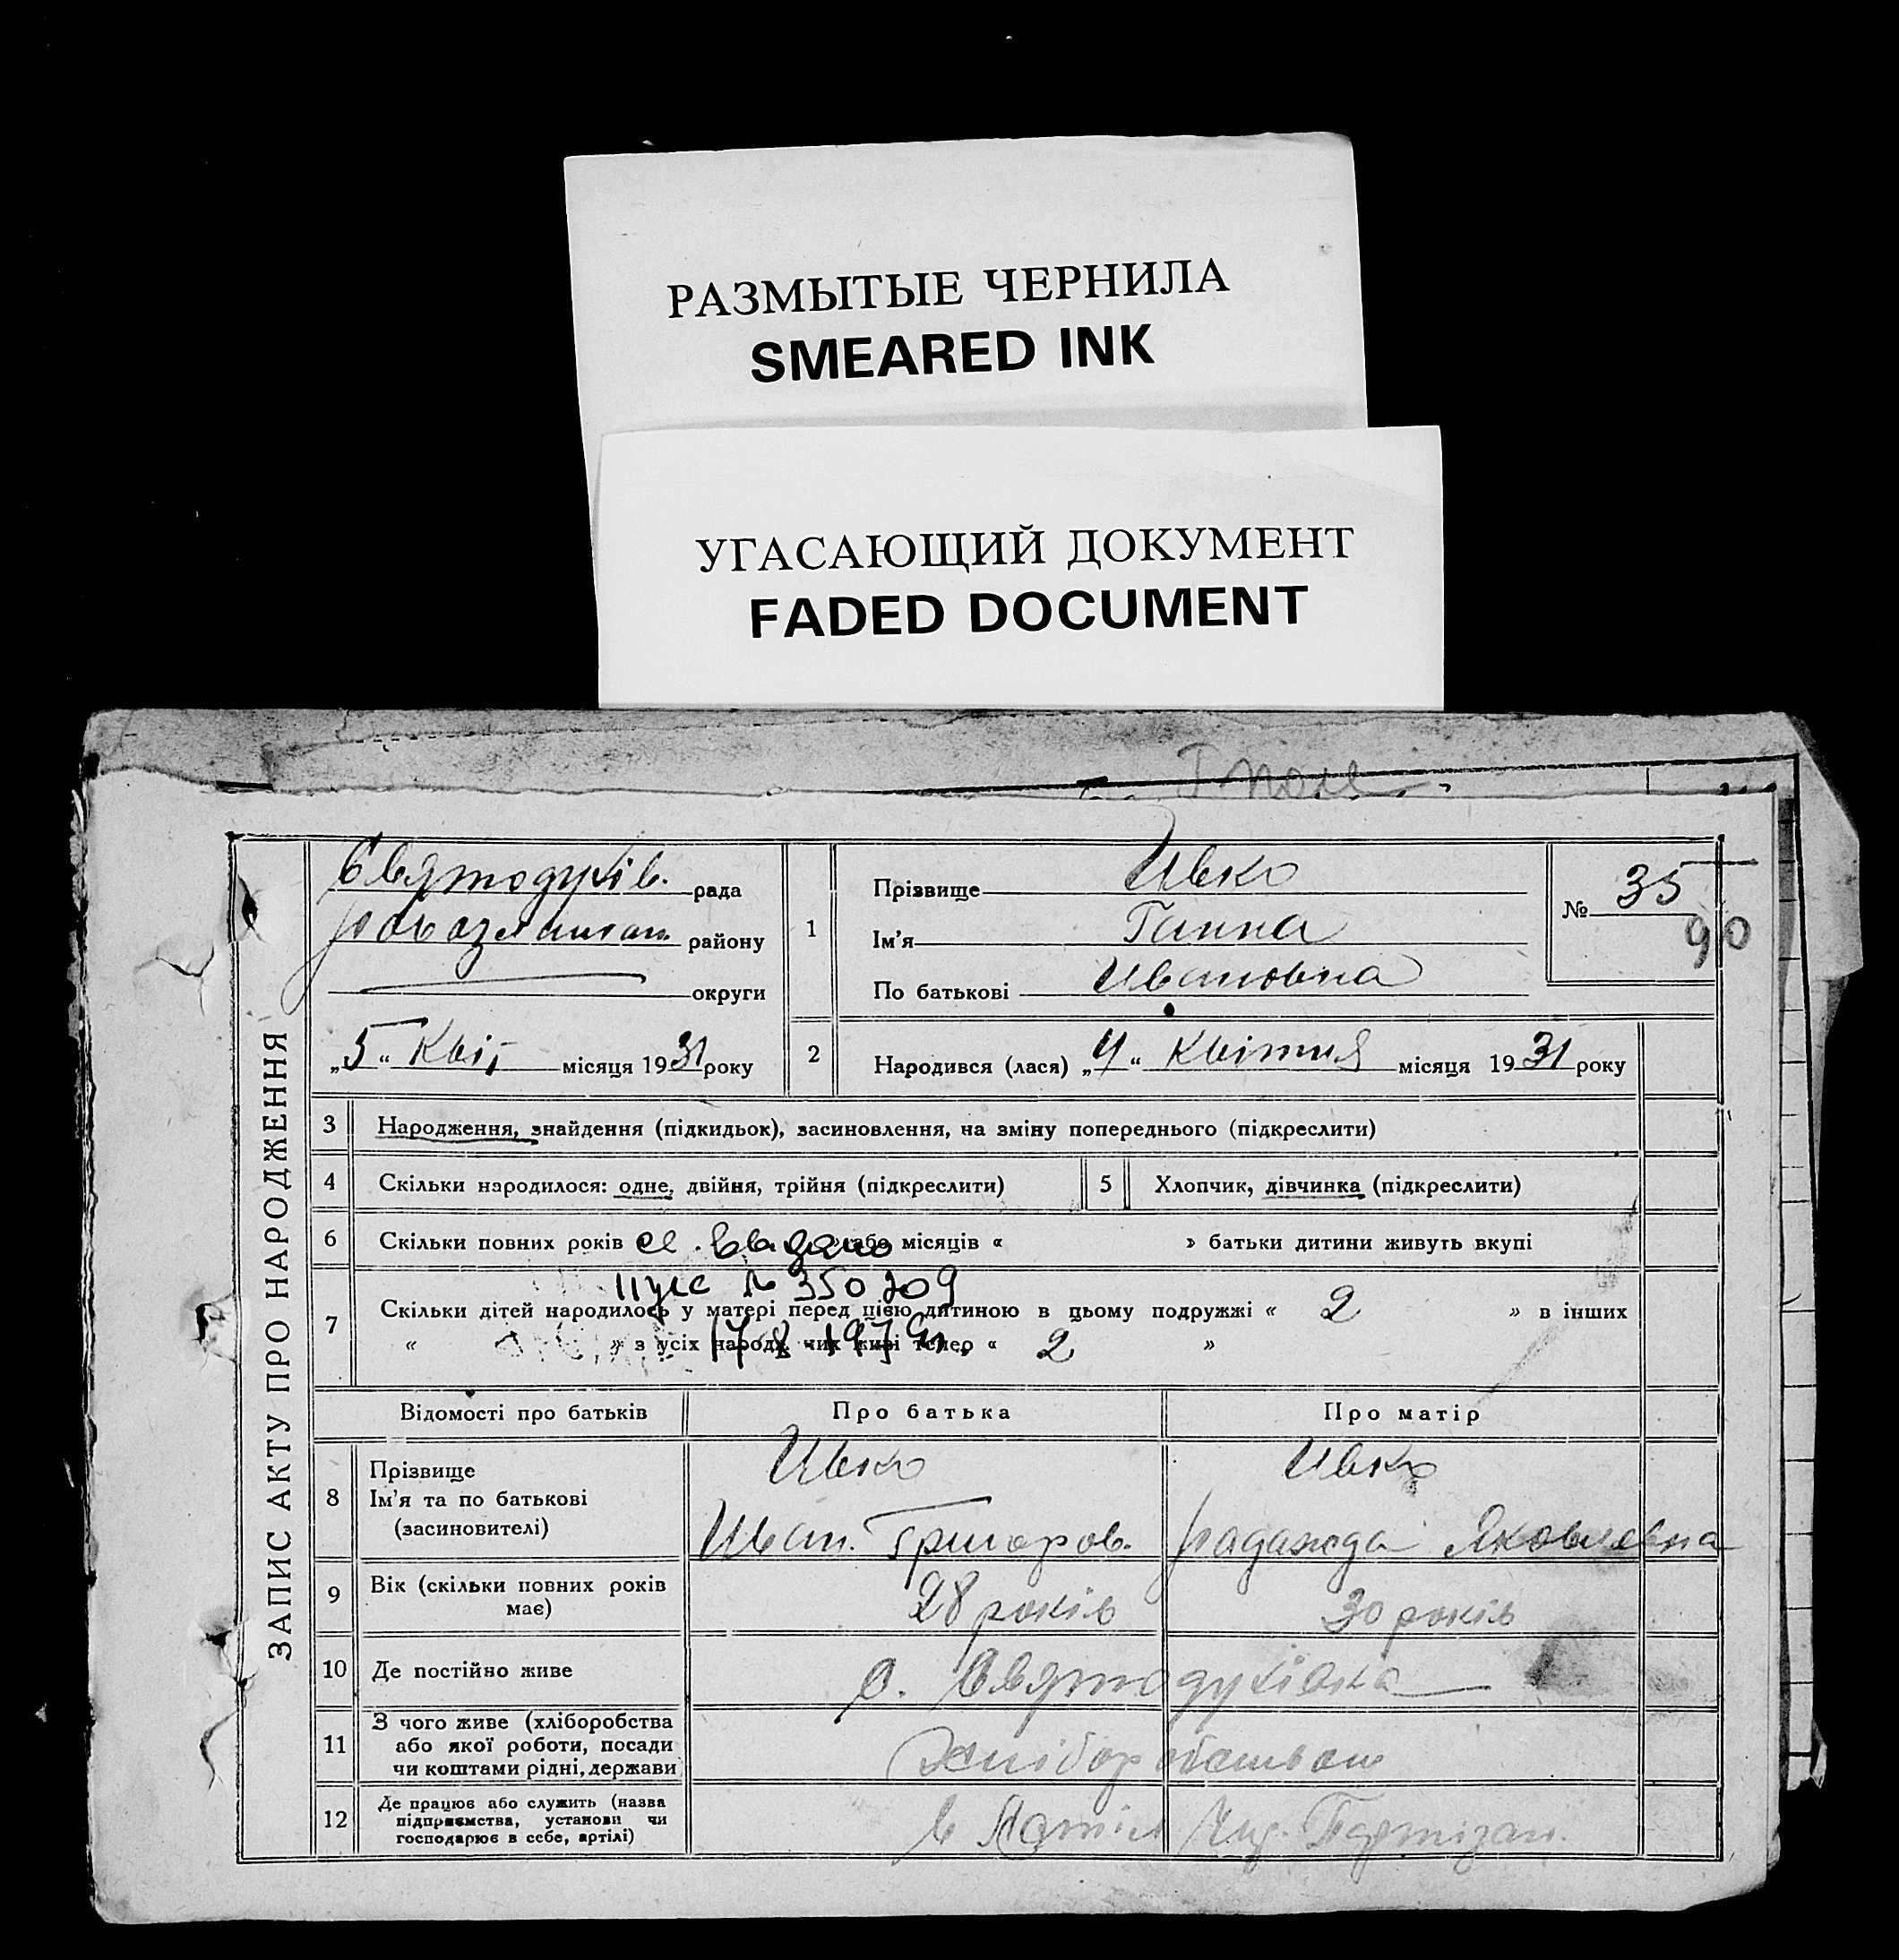 РАЗМЫТЫЕ ЧЕРНИЛА
SMEARED INK
УГАСАЮЩИЙ ДОКУМЕНТ
FADED DOCUMENT
ЗАПИС АКТУ ПРО НАРОДЖЕННЯ
Святодухів. рада
району
округи
„5“ Квіт місяця 1931 року
1
Прізвище Ивко
Ім'я Ганна
По батькові Ивановна
№ 35
90
2 Народився (лася) „4“ Квітня місяця 1931 року
3 Народження, знайдення (підкидьок), засиновлення, на зміну попереднього (підкреслити)
4 Скільки народилося: одне, двійня, трійня (підкреслити)
5 Хлопчик, дівчинка (підкреслити)
6 Скільки повних років або місяців « » батьки дитини живуть вкупі
№ 350209
7 Скільки дітей народилось у матері перед цією дитиною в цьому подружжі « 2 » в інших
« » з усіх народж. них живі тепер « 2 »
Відомості про батьків Про батька Про матір
8 Прізвище
Ім'я та по батькові
(засиновителі)
Ивко
Иван. Григоров.
Ивко
Надажда Яковлевна
9 Вік (скільки повних років
має)
28 років 30 років
10 Де постійно живе с. Святодухівка
11 З чого живе (хліборобства
або якої роботи, посади
чи коштами рідні, держави
Хліборобством
12 Де працює або служить (назва
підприємства, установи чи
господарює в себе, артілі)
в Артілі Чер. Партизан.